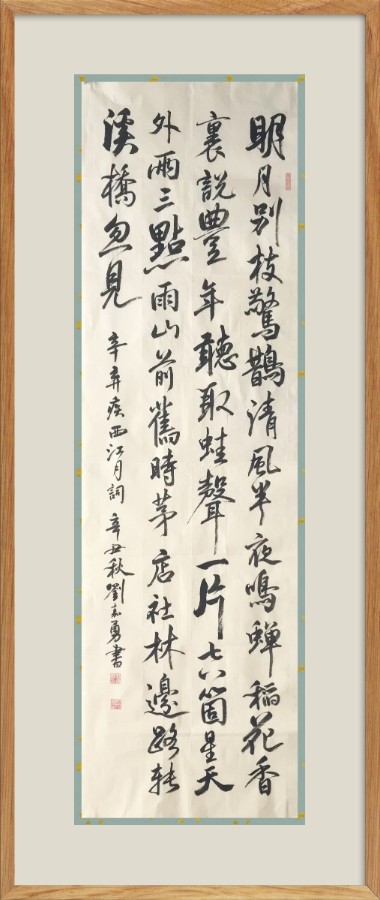 明月別枝驚鵲清風半夜鳴蟬稻花香
裏說豐年聽取蛙聲一片七八箇星天
外兩三點雨山前舊時茅店社林邊路转
溪橋忽見
辛弃疾西江月詞 辛丑秋劉志勇書